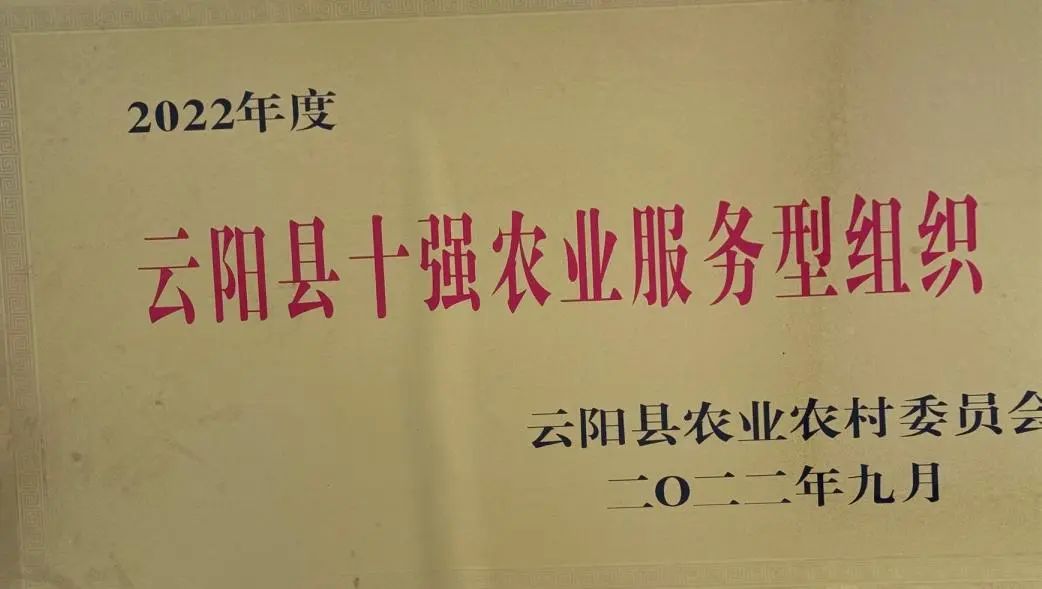 2022年度
云阳县十强农业服务型组织
云阳县农业农村委员会
二O二二年九月